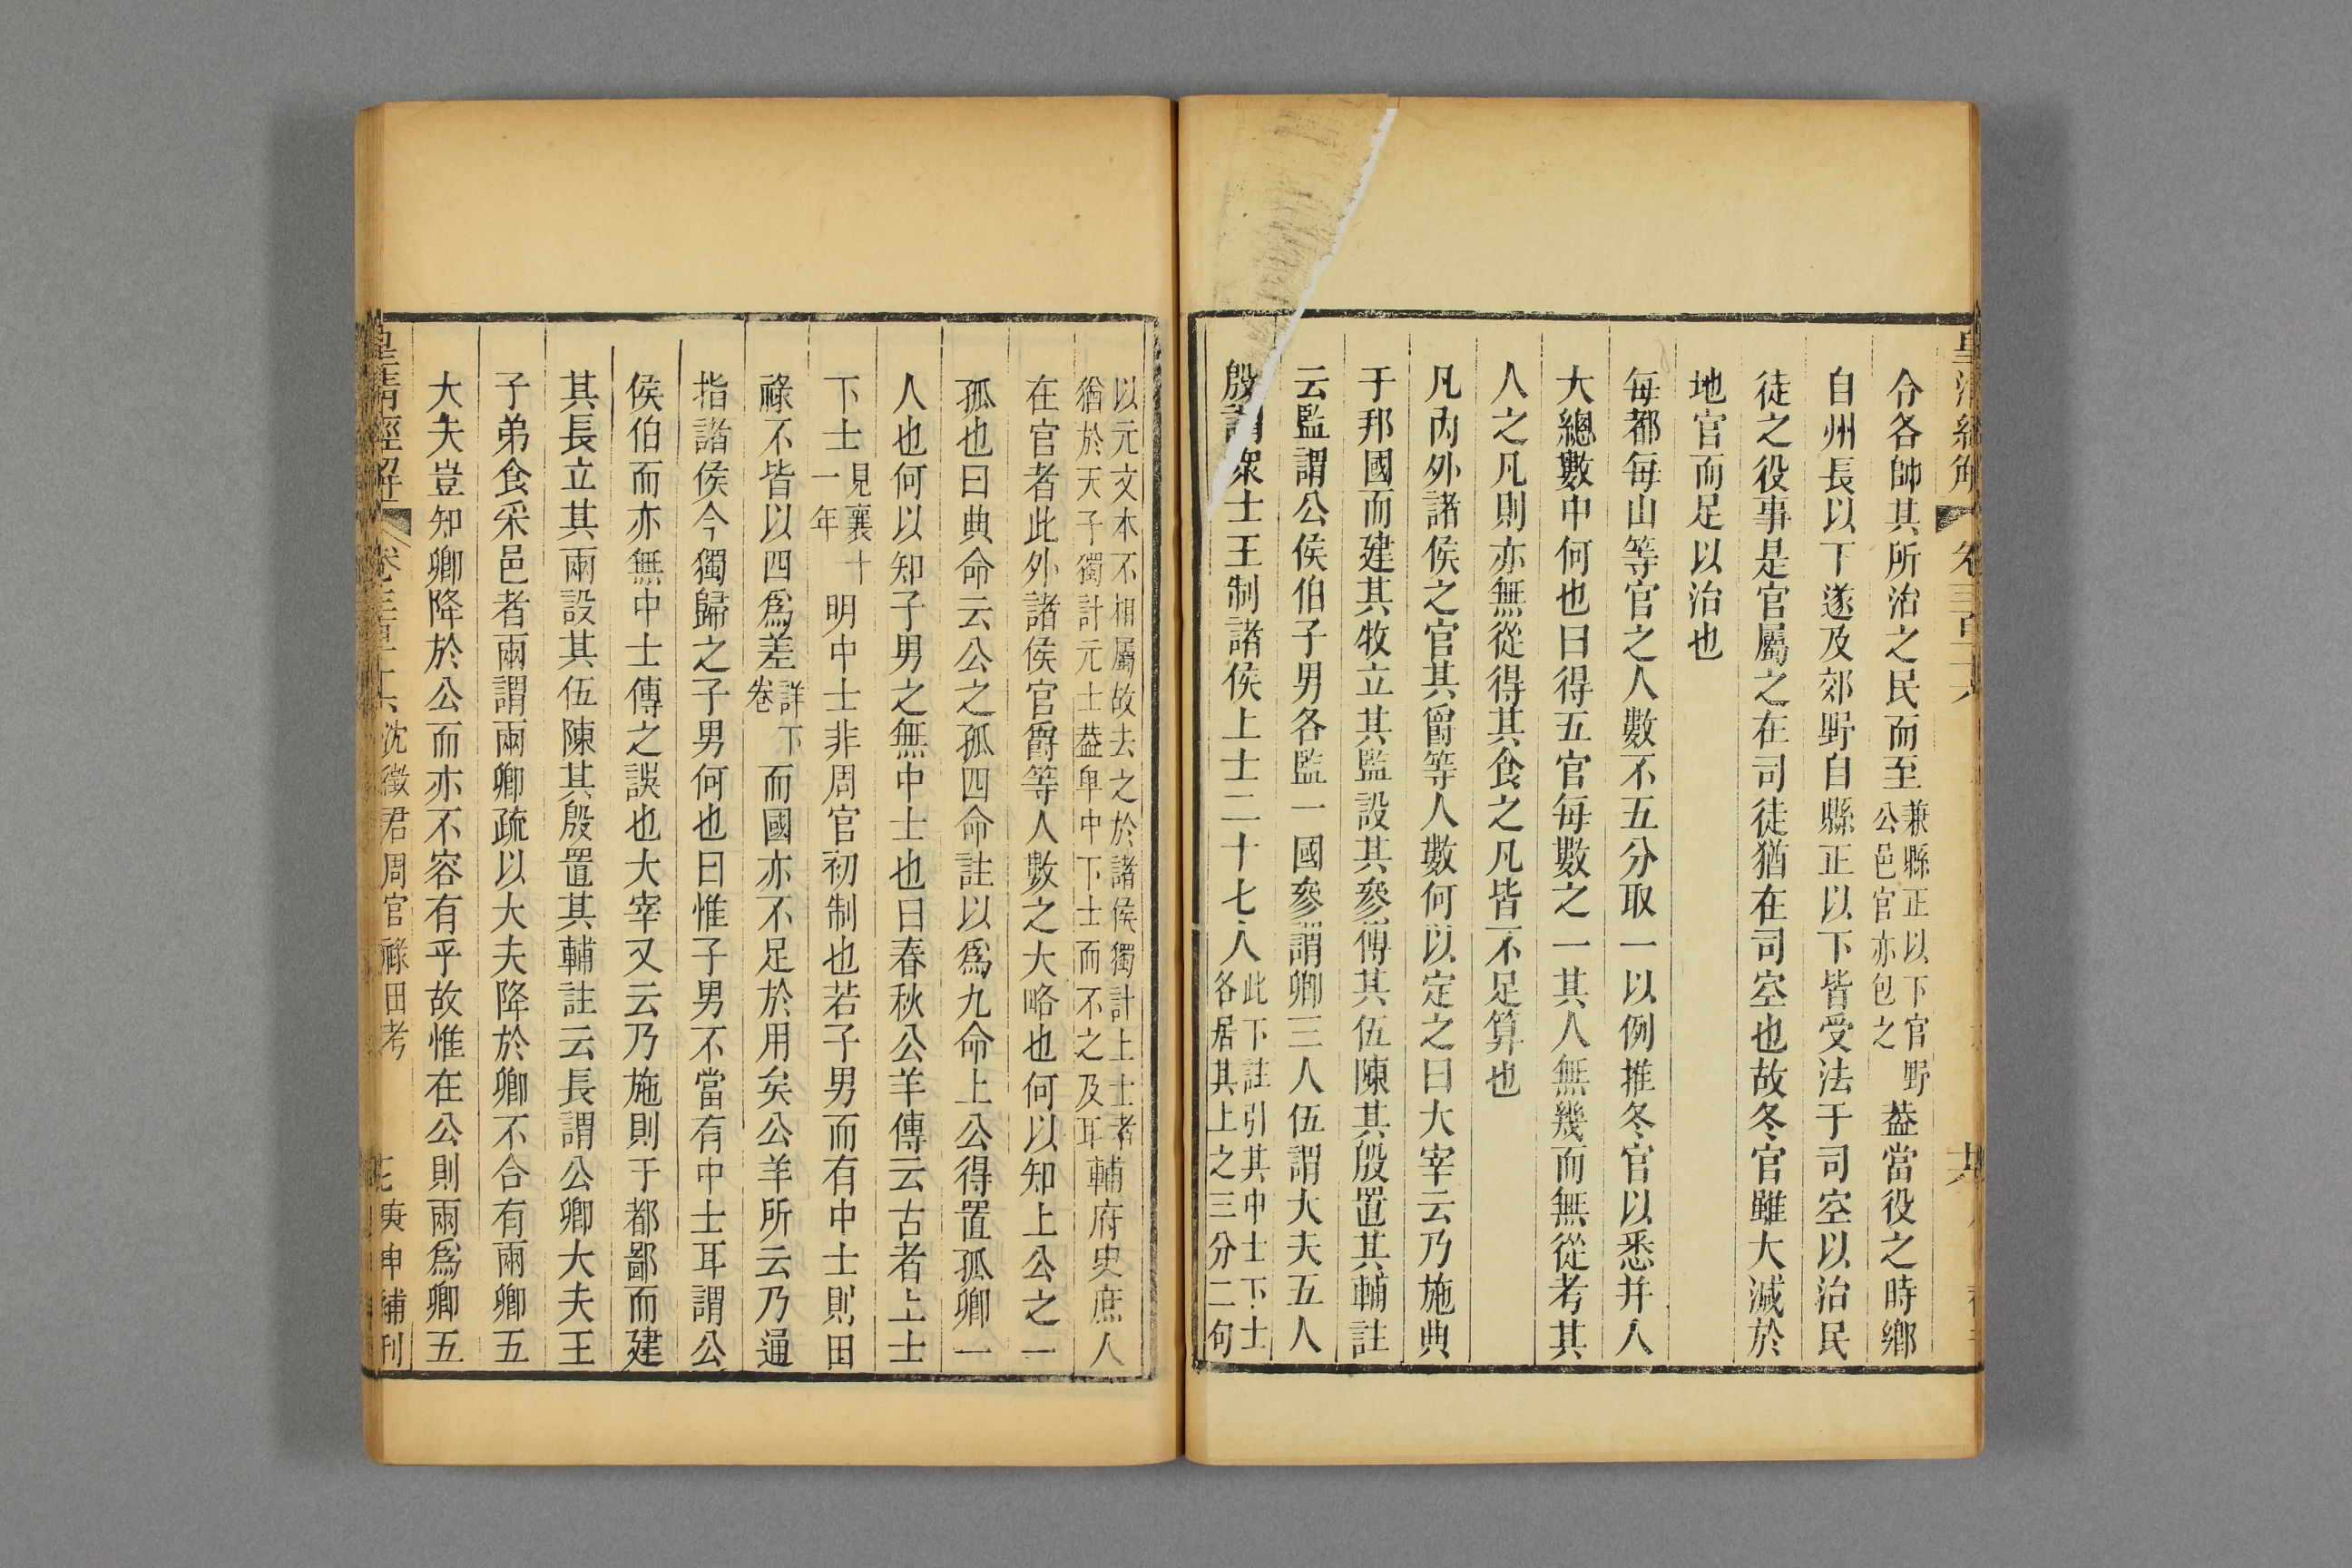 令各帥其所治之民而至兼縣正以下官野公邑官亦包之葢當役之時鄉
自州長以下遂及郊野自縣正以下皆受法于司空以治民
徒之役事是官屬之在司徒猶在司空也故冬官雖大減於
地官而足以治也
每都每山等官之人數不五分取一以例推冬官以悉并人
大總數中何也曰得五官每數之一其人無幾而無從考其
人之凡則亦無從得其食之凡皆不足算也
凡內外諸侯之官其爵等人數何以定之曰大宰云乃施典
于邦國而建其牧立其監設其參傅其伍陳其殷置其輔註
云監謂公侯伯子男各監一國參謂卿三人伍謂大夫五人
殷謂眾士王制諸侯上士二十七人此下註引其中士下士各居其上之三分二何
以元文本不相屬故去之於諸侯獨計上士者猶於天子獨計元士葢卑中下士而不之及耳輔府史庶人
在官者此外諸侯官爵等人數之大略也何以知上公之一
孤也曰典命云公之孤四命註以爲九命上公得置孤卿一
人也何以知子男之無中士也曰春秋公羊傳云古者上士
下士見襄十一年明中士非周官初制也若子男而有中士則田
祿不皆以四爲差詳下卷而國亦不足於用矣公羊所云乃通
指諸侯今獨歸之子男何也曰惟子男不當有中士耳謂公
侯伯而亦無中士傳之誤也大宰又云乃施則于都鄙而建
其長立其兩設其伍陳其殷置其輔註云長謂公卿大夫王
子弟食采邑者兩謂兩卿疏以大夫降於卿不合有兩卿五
大夫豈知卿降於公而亦不容有乎故惟在公則兩爲卿五
皇清經解 卷三百十六 沈徵君周官祿田考 庚申補刊